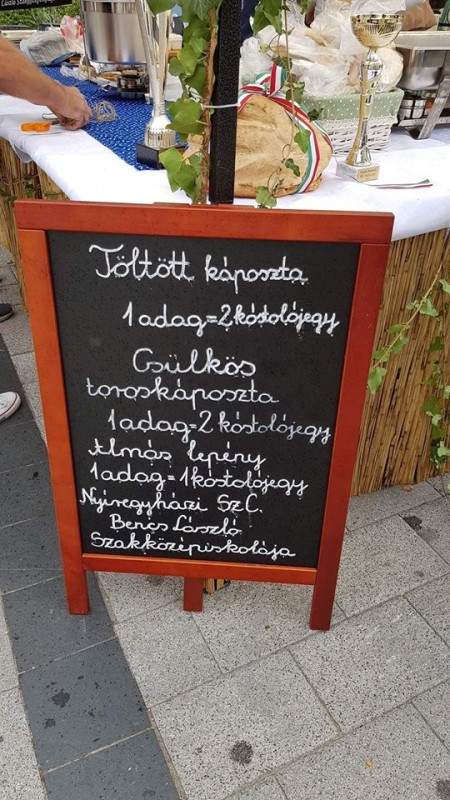 Töltött káposzta
1 adag=2 kóstolójegy
Csülkös
toroskáposzta
1 adag=2 kóstolójegy
Almás lepény
1 adag=1 kóstolójegy
Nyíregyházi SzC.
Bencs László
Szakközépiskolája